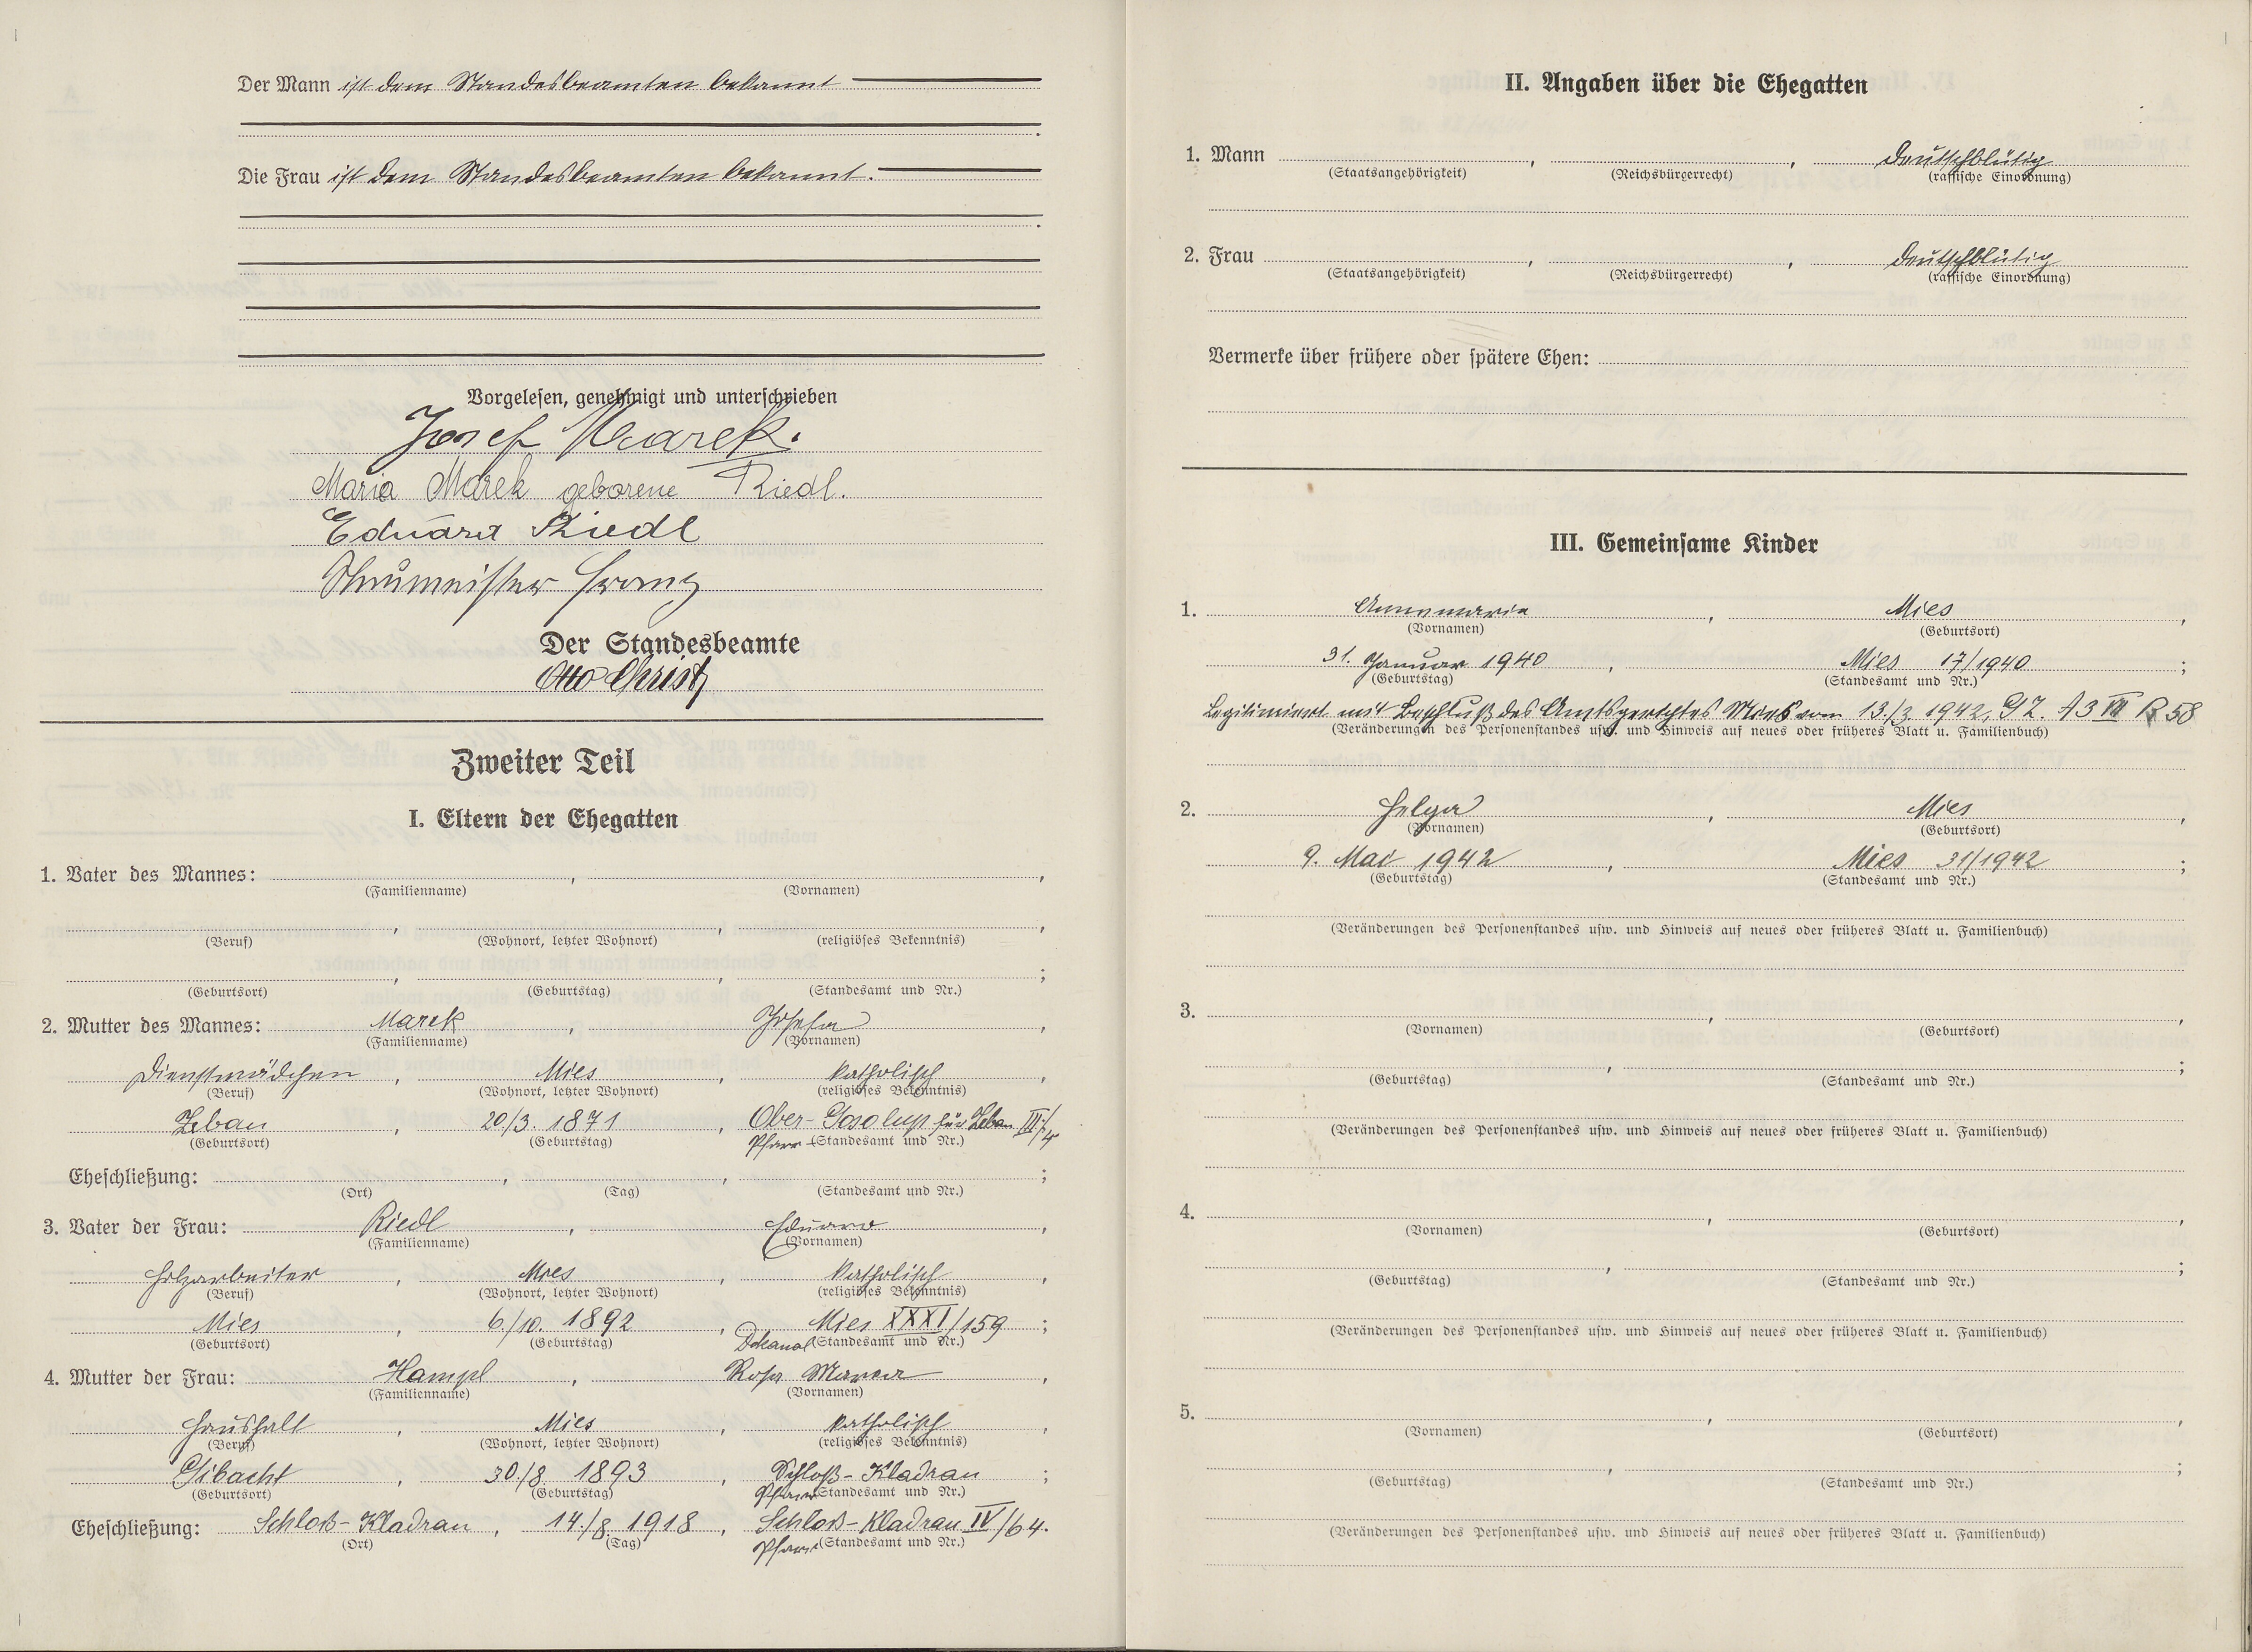 Der Mann ist dem Standesbeamten bekannt
Die Frau ist dem Standesbeamten bekannt.
Vorgelesen, genehmigt und unterschrieben
Josef Marek.
Maria Marek geborene Riedl.
Eduard Riedl
Franz
Der Standesbeamte
Otto Christ
Zweiter Teil
I. Eltern der Ehegatten
1. Vater des Mannes: , ,
(Familienname) (Vornamen)
, , ,
(Beruf) (Wohnort, letzter Wohnort) (religiöses Bekenntnis)
, , ;
(Geburtsort) (Geburtstag) (Standesamt und Nr.)
2. Mutter des Mannes: Marek , Josefa ,
(Familienname) (Vornamen)
Dienstmädchen , Mies , katholisch ,
(Beruf) (Wohnort, letzter Wohnort) (religiöses Bekenntnis)
Zeban , 20/3. 1871 , Ober- für Zeban III/4
(Geburtsort) (Geburtstag) Pfarr (Standesamt und Nr.)
Eheschließung: , , ;
(Ort) (Tag) (Standesamt und Nr.)
3. Vater der Frau: Riedl , Eduard ,
(Familienname) (Vornamen)
Holzarbeiter , Mies , katholisch ,
(Beruf) (Wohnort, letzter Wohnort) (religiöses Bekenntnis)
Mies , 6./10. 1892 , Mies XXXI/159 ;
(Geburtsort) (Geburtstag) Dekanal (Standesamt und Nr.)
4. Mutter der Frau: Hampl , Rosa Maria ,
(Familienname) (Vornamen)
Haushalt , Mies , katholisch ,
(Beruf) (Wohnort, letzter Wohnort) (religiöses Bekenntnis)
Gibacht , 30./8 1893 , Schloß-Kladrau ;
(Geburtsort) (Geburtstag) Pfarr (Standesamt und Nr.)
Eheschließung: Schloß-Kladrau , 14./8. 1918 , Schloß-Kladrau IV/64.
(Ort) (Tag) Pfarr (Standesamt und Nr.)
II. Angaben über die Ehegatten
1. Mann , , deutschblütig
(Staatsangehörigkeit) (Reichsbürgerrecht) (rassische Einordnung)
2. Frau , , deutschblütig
(Staatsangehörigkeit) (Reichsbürgerrecht) (rassische Einordnung)
Vermerke über frühere oder spätere Ehen:
III. Gemeinsame Kinder
1. Annemarie , Mies ,
(Vornamen) (Geburtsort)
31. Januar 1940 , Mies 17/1940 ;
(Geburtstag) (Standesamt und Nr.)
Legitimiert mit Beschluß des Amtsgerichtes Mies vom 13./3. 1942, GZ. A3 VII R 58
(Veränderungen des Personenstandes usw. und Hinweis auf neues oder früheres Blatt u. Familienbuch)
2. Helga , Mies ,
(Vornamen) (Geburtsort)
9. Mai 1942 , Mies 31/1942 ;
(Geburtstag) (Standesamt und Nr.)
(Veränderungen des Personenstandes usw. und Hinweis auf neues oder früheres Blatt u. Familienbuch)
3. , ,
(Vornamen) (Geburtsort)
, ;
(Geburtstag) (Standesamt und Nr.)
(Veränderungen des Personenstandes usw. und Hinweis auf neues oder früheres Blatt u. Familienbuch)
4. , ,
(Vornamen) (Geburtsort)
, ;
(Geburtstag) (Standesamt und Nr.)
(Veränderungen des Personenstandes usw. und Hinweis auf neues oder früheres Blatt u. Familienbuch)
5. , ,
(Vornamen) (Geburtsort)
, ;
(Geburtstag) (Standesamt und Nr.)
(Veränderungen des Personenstandes usw. und Hinweis auf neues oder früheres Blatt u. Familienbuch)